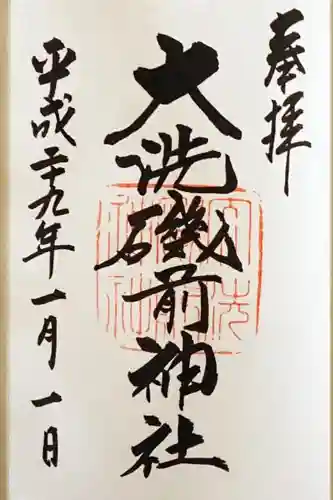 奉拝
大洗磯前神社
平成二十九年一月一日